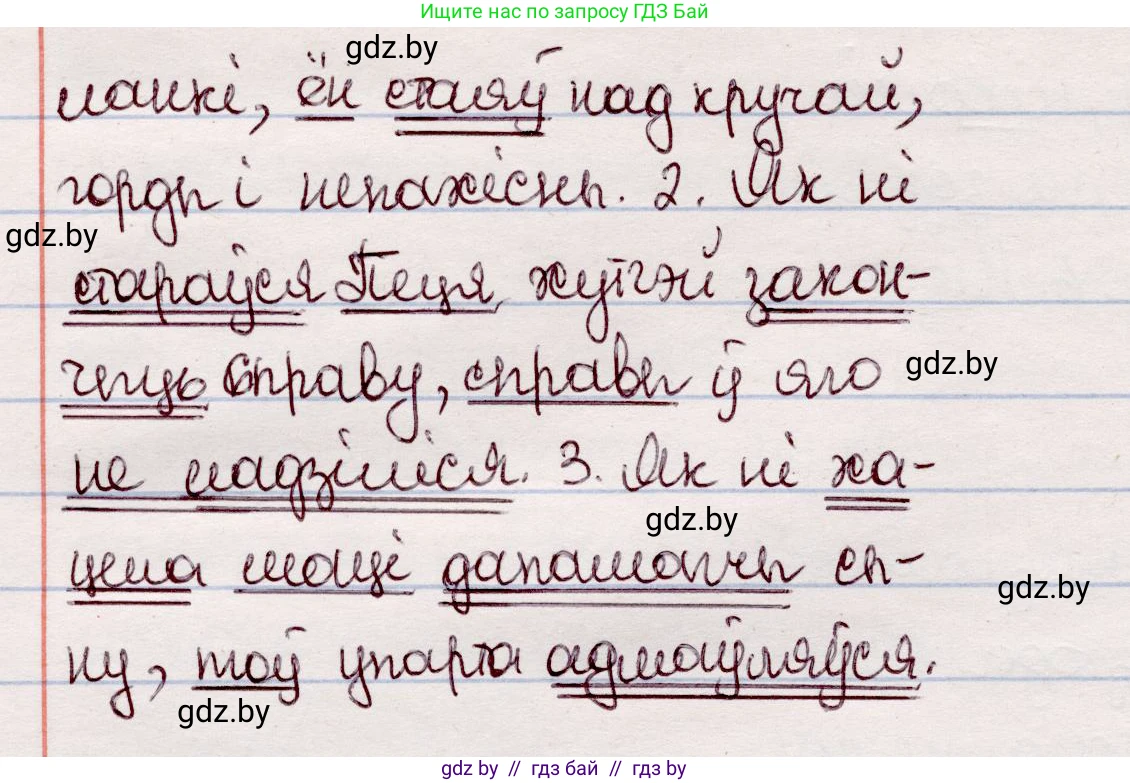 Ищите нас по запросу ГДЗ Бай
gdz.by
ланкі, ён стаяў над кручай,
горды і непахісны. 2. Як ні
gdz.by
стараўся Пеця хутчэй закон-
чыць справу, справы ў яго
gdz.by
не ладзіліся. 3. Як ні ха-
gdz.by
цела маці дапамагчы сы-
gdz.by
ну, той упарта адмаўляўся.
gdz.by
gdz by // гдз бай // гдз by